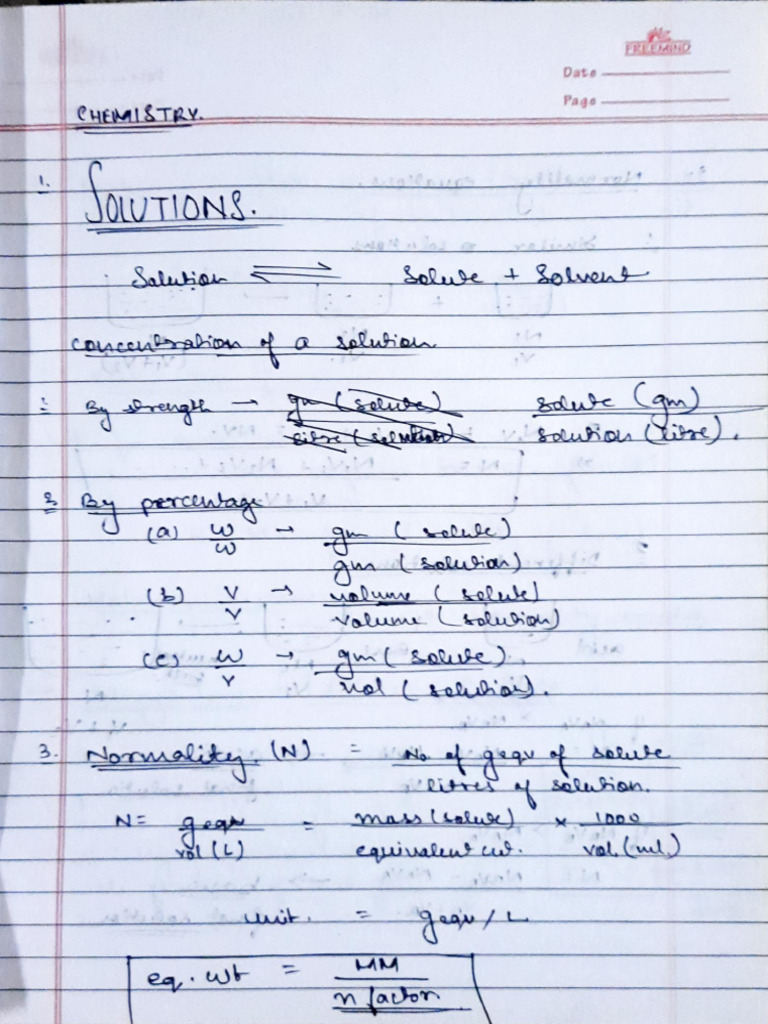 FREEMIND
Date
Page
CHEMISTRY.
1. SOLUTIONS.
Solution ⇌ Solute + Solvent
concentration of a solution.
By strength → gm (solute) / litre (solution) solute (gm) / solution (litre).
2. By percentage
(a) w/w → gm (solute) / gm (solution)
(b) V/V → volume (solute) / volume (solution)
(c) w/V → gm (solute) / vol (solution).
3. Normality. (N) = No of geqv of solute / litres of solution.
N = geqv / vol (L) = mass (solute) / equivalent wt. × 1000 / vol. (ml)
unit. = geqv / L
eq. wt = MM / n factor.